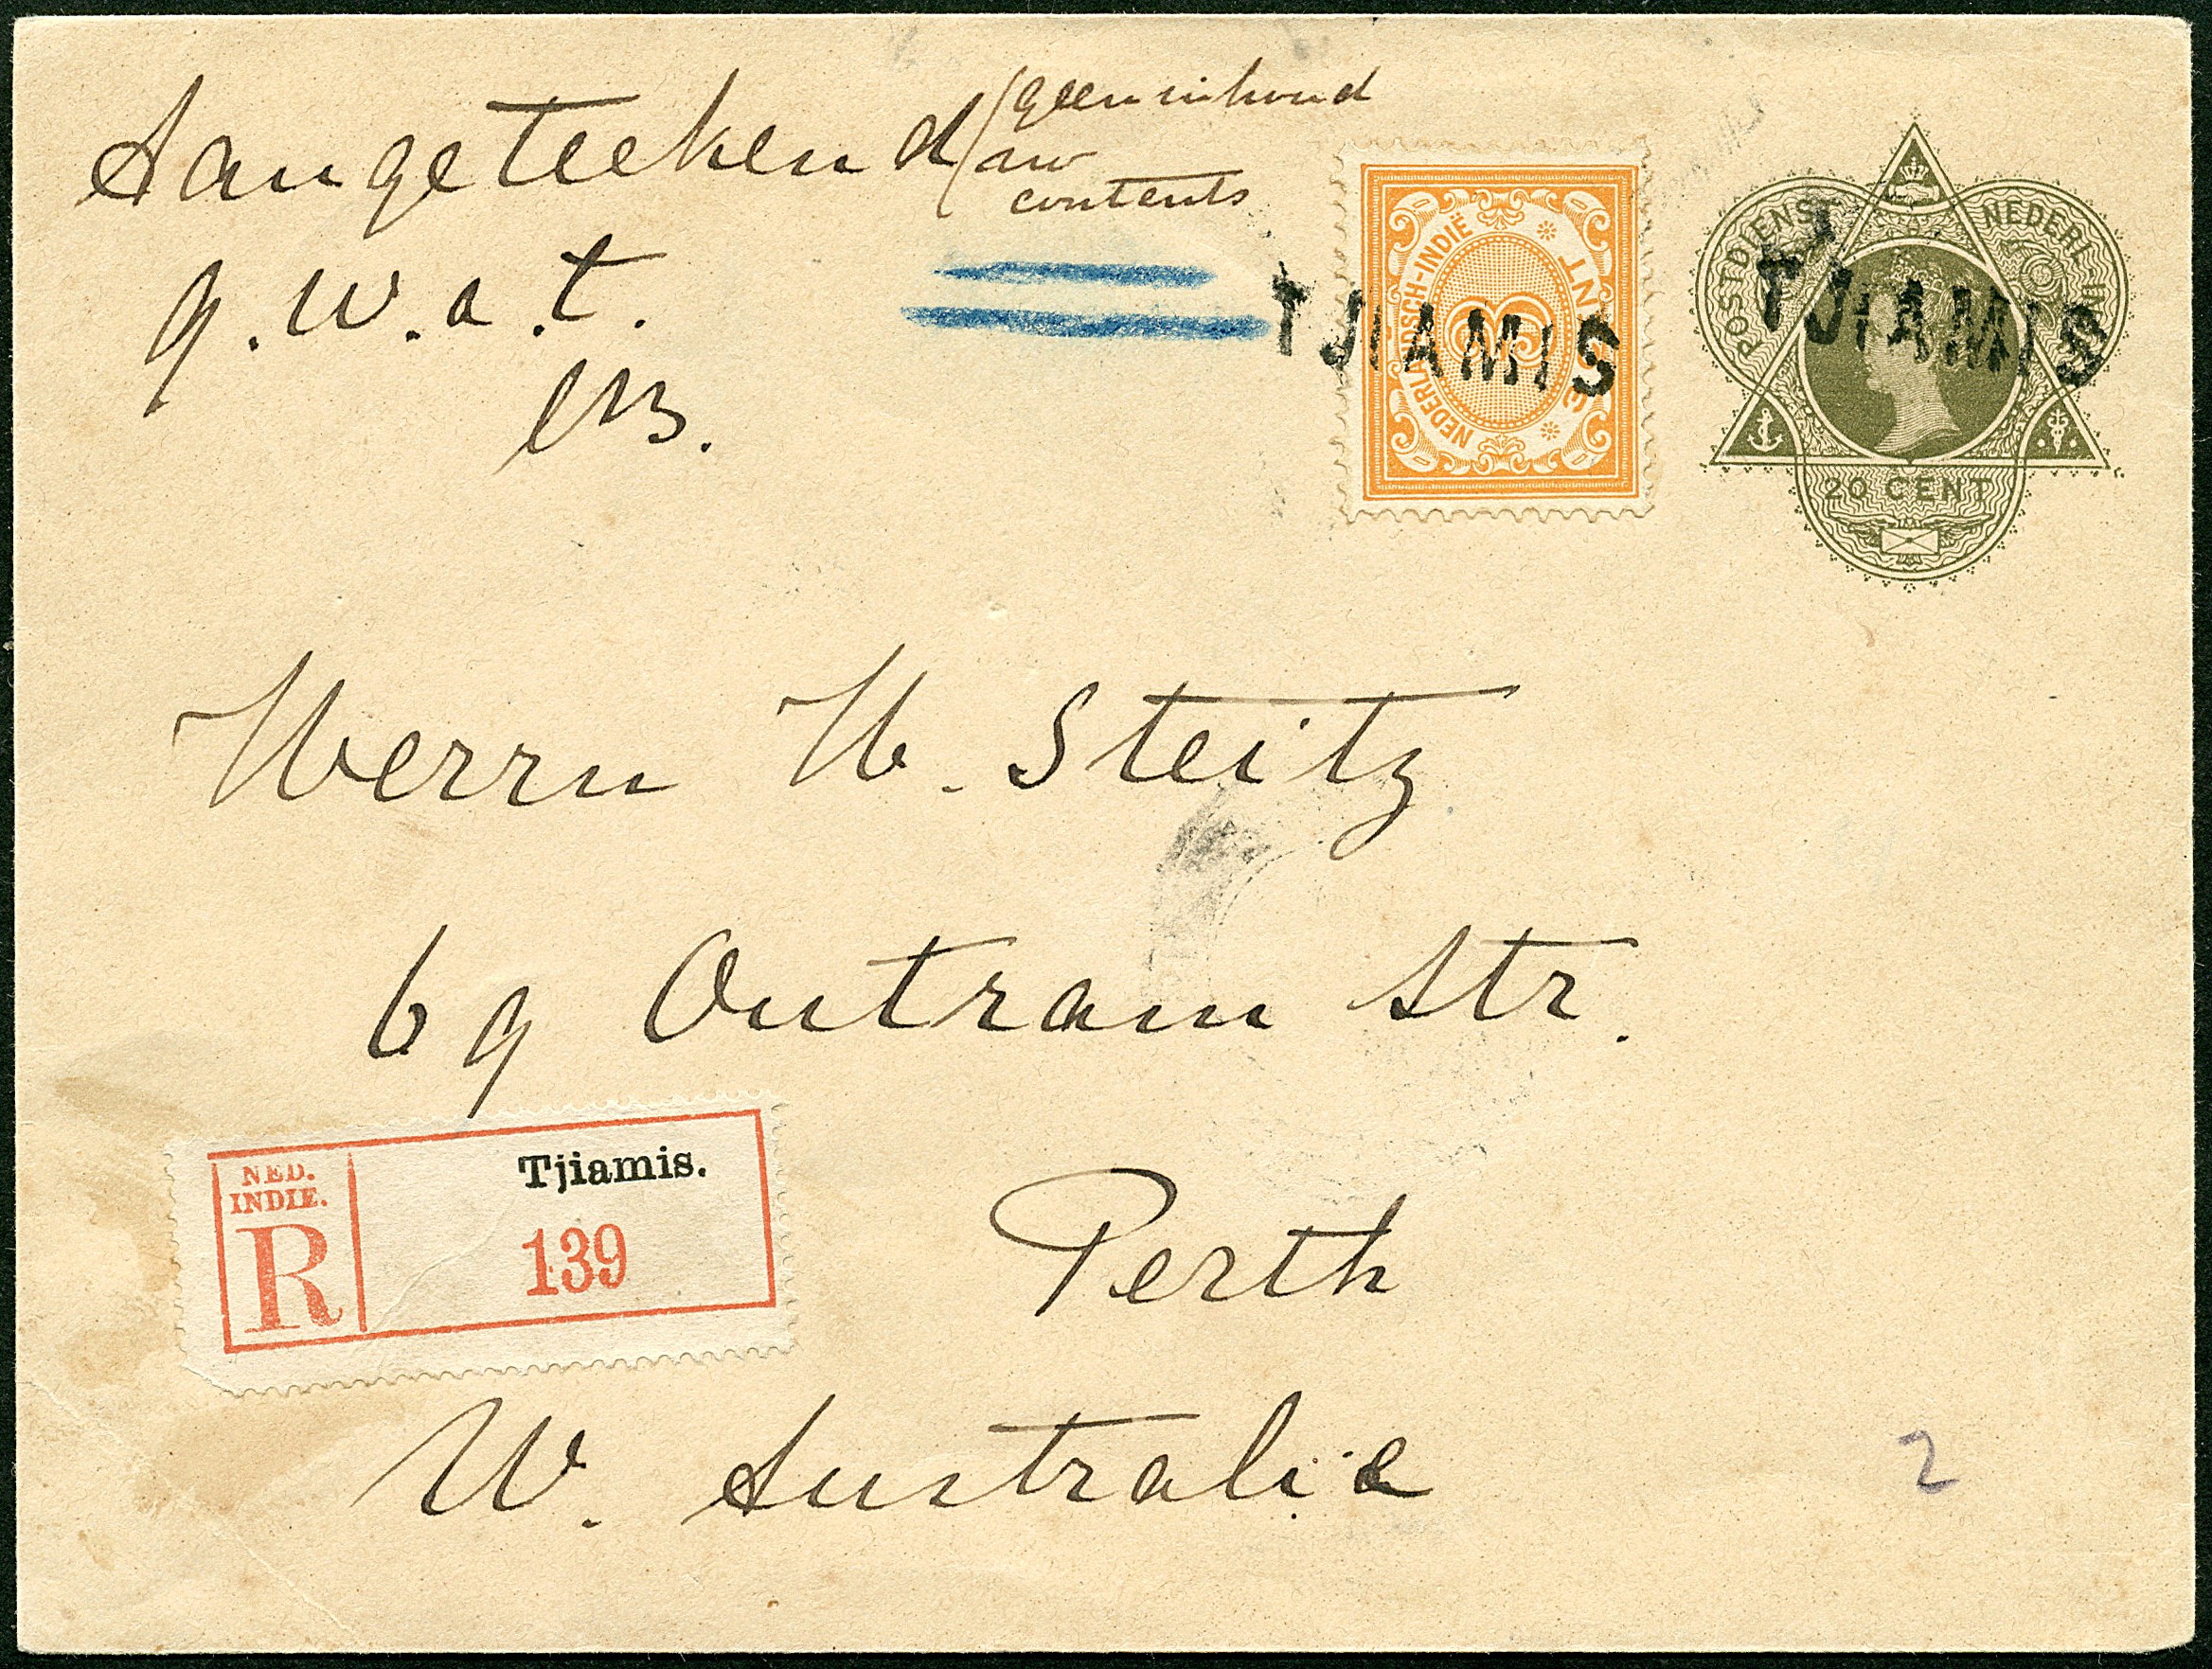 Aangeteekend
geen inhoud
no
contents
g.w.a.t.
NED.
INDIE.
R
Tjiamis.
139
NEDERLANDSCH-INDIË
3 CENT
TJIAMIS
POSTDIENST NEDERL-IN
20 CENT
TJIAMIS
Herrn W. Steitz
69 Outram Str.
Perth
W. Australia
2